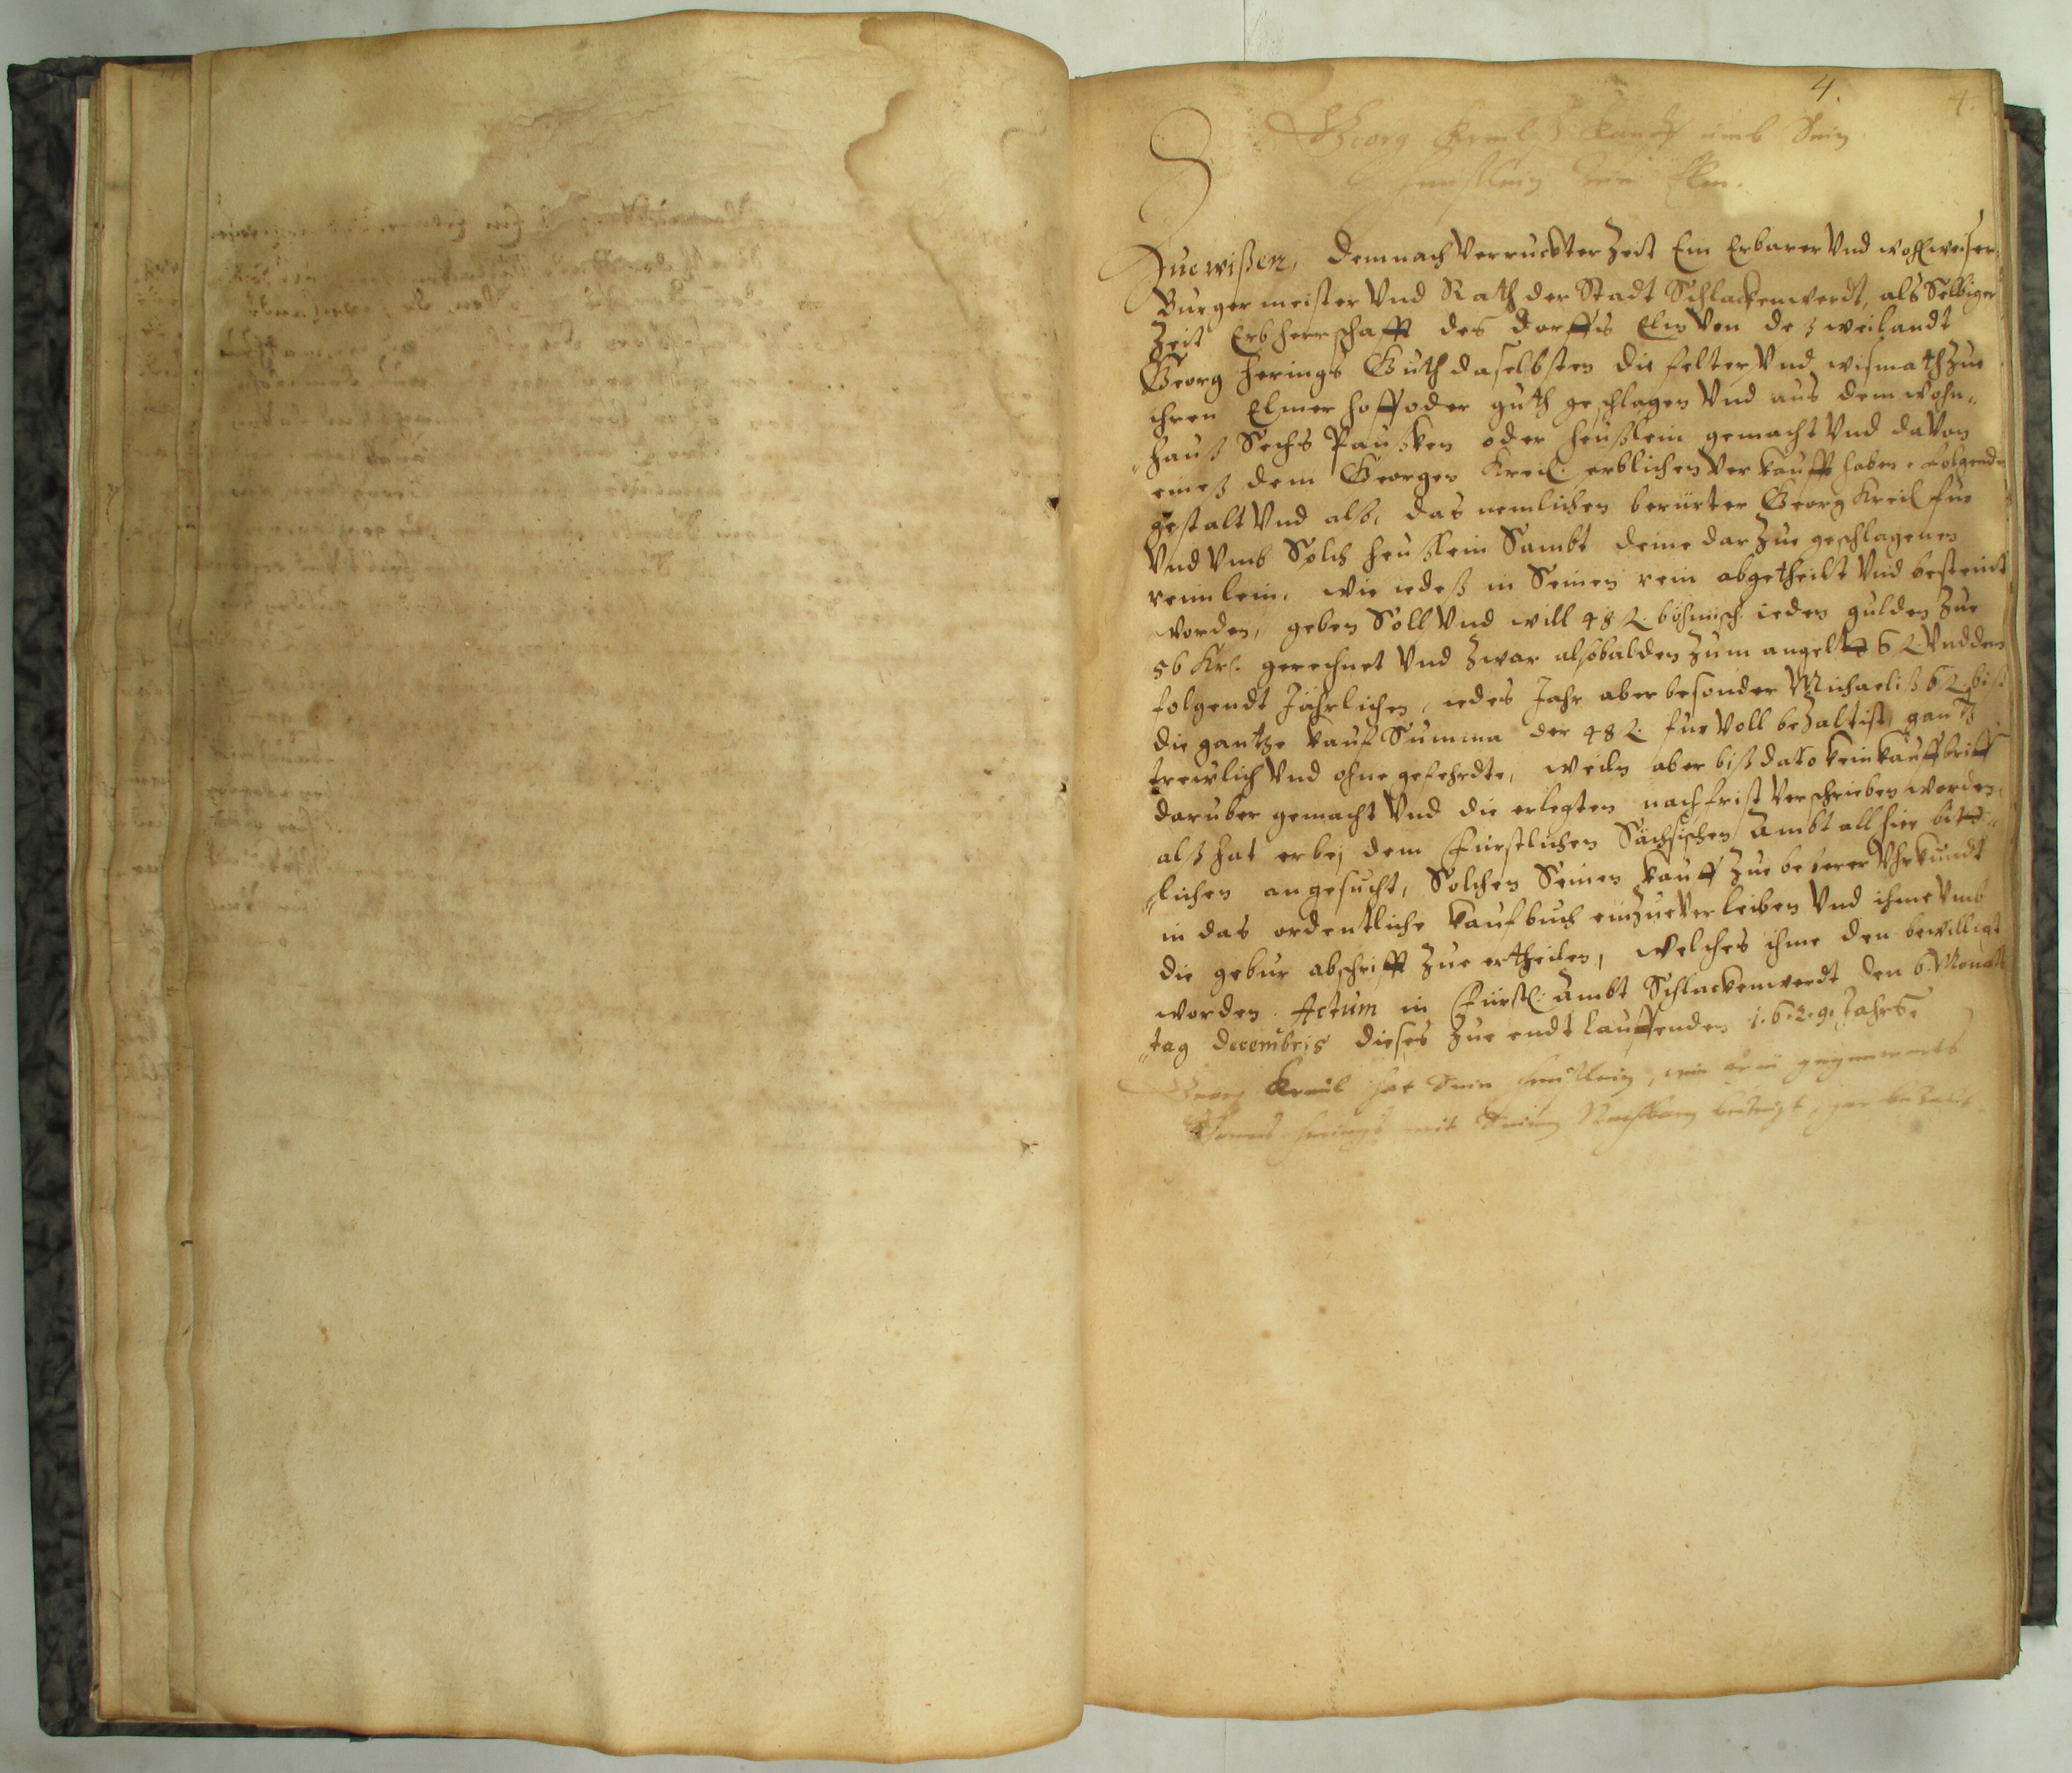 4.
4.
Georg Kreil Kauff umb Sein
heußlein Zue Elm.
Zue wißen, demnach Verruckter Zeit Ein Erbarer Vnd wollweiser
Burgermeister Vnd Rath der Stadt Schlackenwerdt, als Selbiger
Zeit Erbherrschafft des dorffs Elm Von deß weilandt
Georg Herings Guth daselbsten die felter Vnd wismath Zue
ihren Elmer hoff oder guth geschlagen Vnd aus dem wohn„
„hauß Sechs oder heußlein gemacht Vnd davon
eineß dem Georgen Kreil erblichen Verkaufft haben, folgender
gestalt Vnd also, das nemlichen berürter Georg Kreil für
Vnd Vmb Solch heußlein Sambt deme darZue geschlagenen
reinlein, wie iedeß in Seinen rein abgetheilt Vnd besteint
worden, geben Soll Vnd will 48 f. böhmisch ieden gulden Zue
56 Kr. gerechnet Vnd Zwar alsobalden Zum angelt 6 f. Vnd den
folgendt Jährlichen, iedes Jahr aber besonder Michaeliß 6 f. biß
die gantze kauf Summa der 48 f. für Voll beZalt ist, gantz
trewlich Vnd ohne gefehrdte, weiln aber biß dato kein kauffbriff
daruber gemacht Vnd die erlegten nachfrist Verschrieben worden,
alß hat er bej dem Fürstlichen Sächsischen Ambt allhier bitt„
„lichen angesucht, Solchen Seinen kauff Zue beserer Vhrkundt
in das ordentliche kaufbuch einZueVerleiben Vnd ihme Vmb
die gebur abschrifft Zue ertheilen, welches ihme den bewilligt
worden. Actum in Fürstl: Ambt Schlackenwerdt den 6. Monats
„tag decembris dieses Zue endt lauffenden 1.6.2.9. Jahrs.
Georg Kreil hat Sein heußlein, wie gegenwerts
herings mit Seinen Nachbarn bezeugt, gar bezalt.